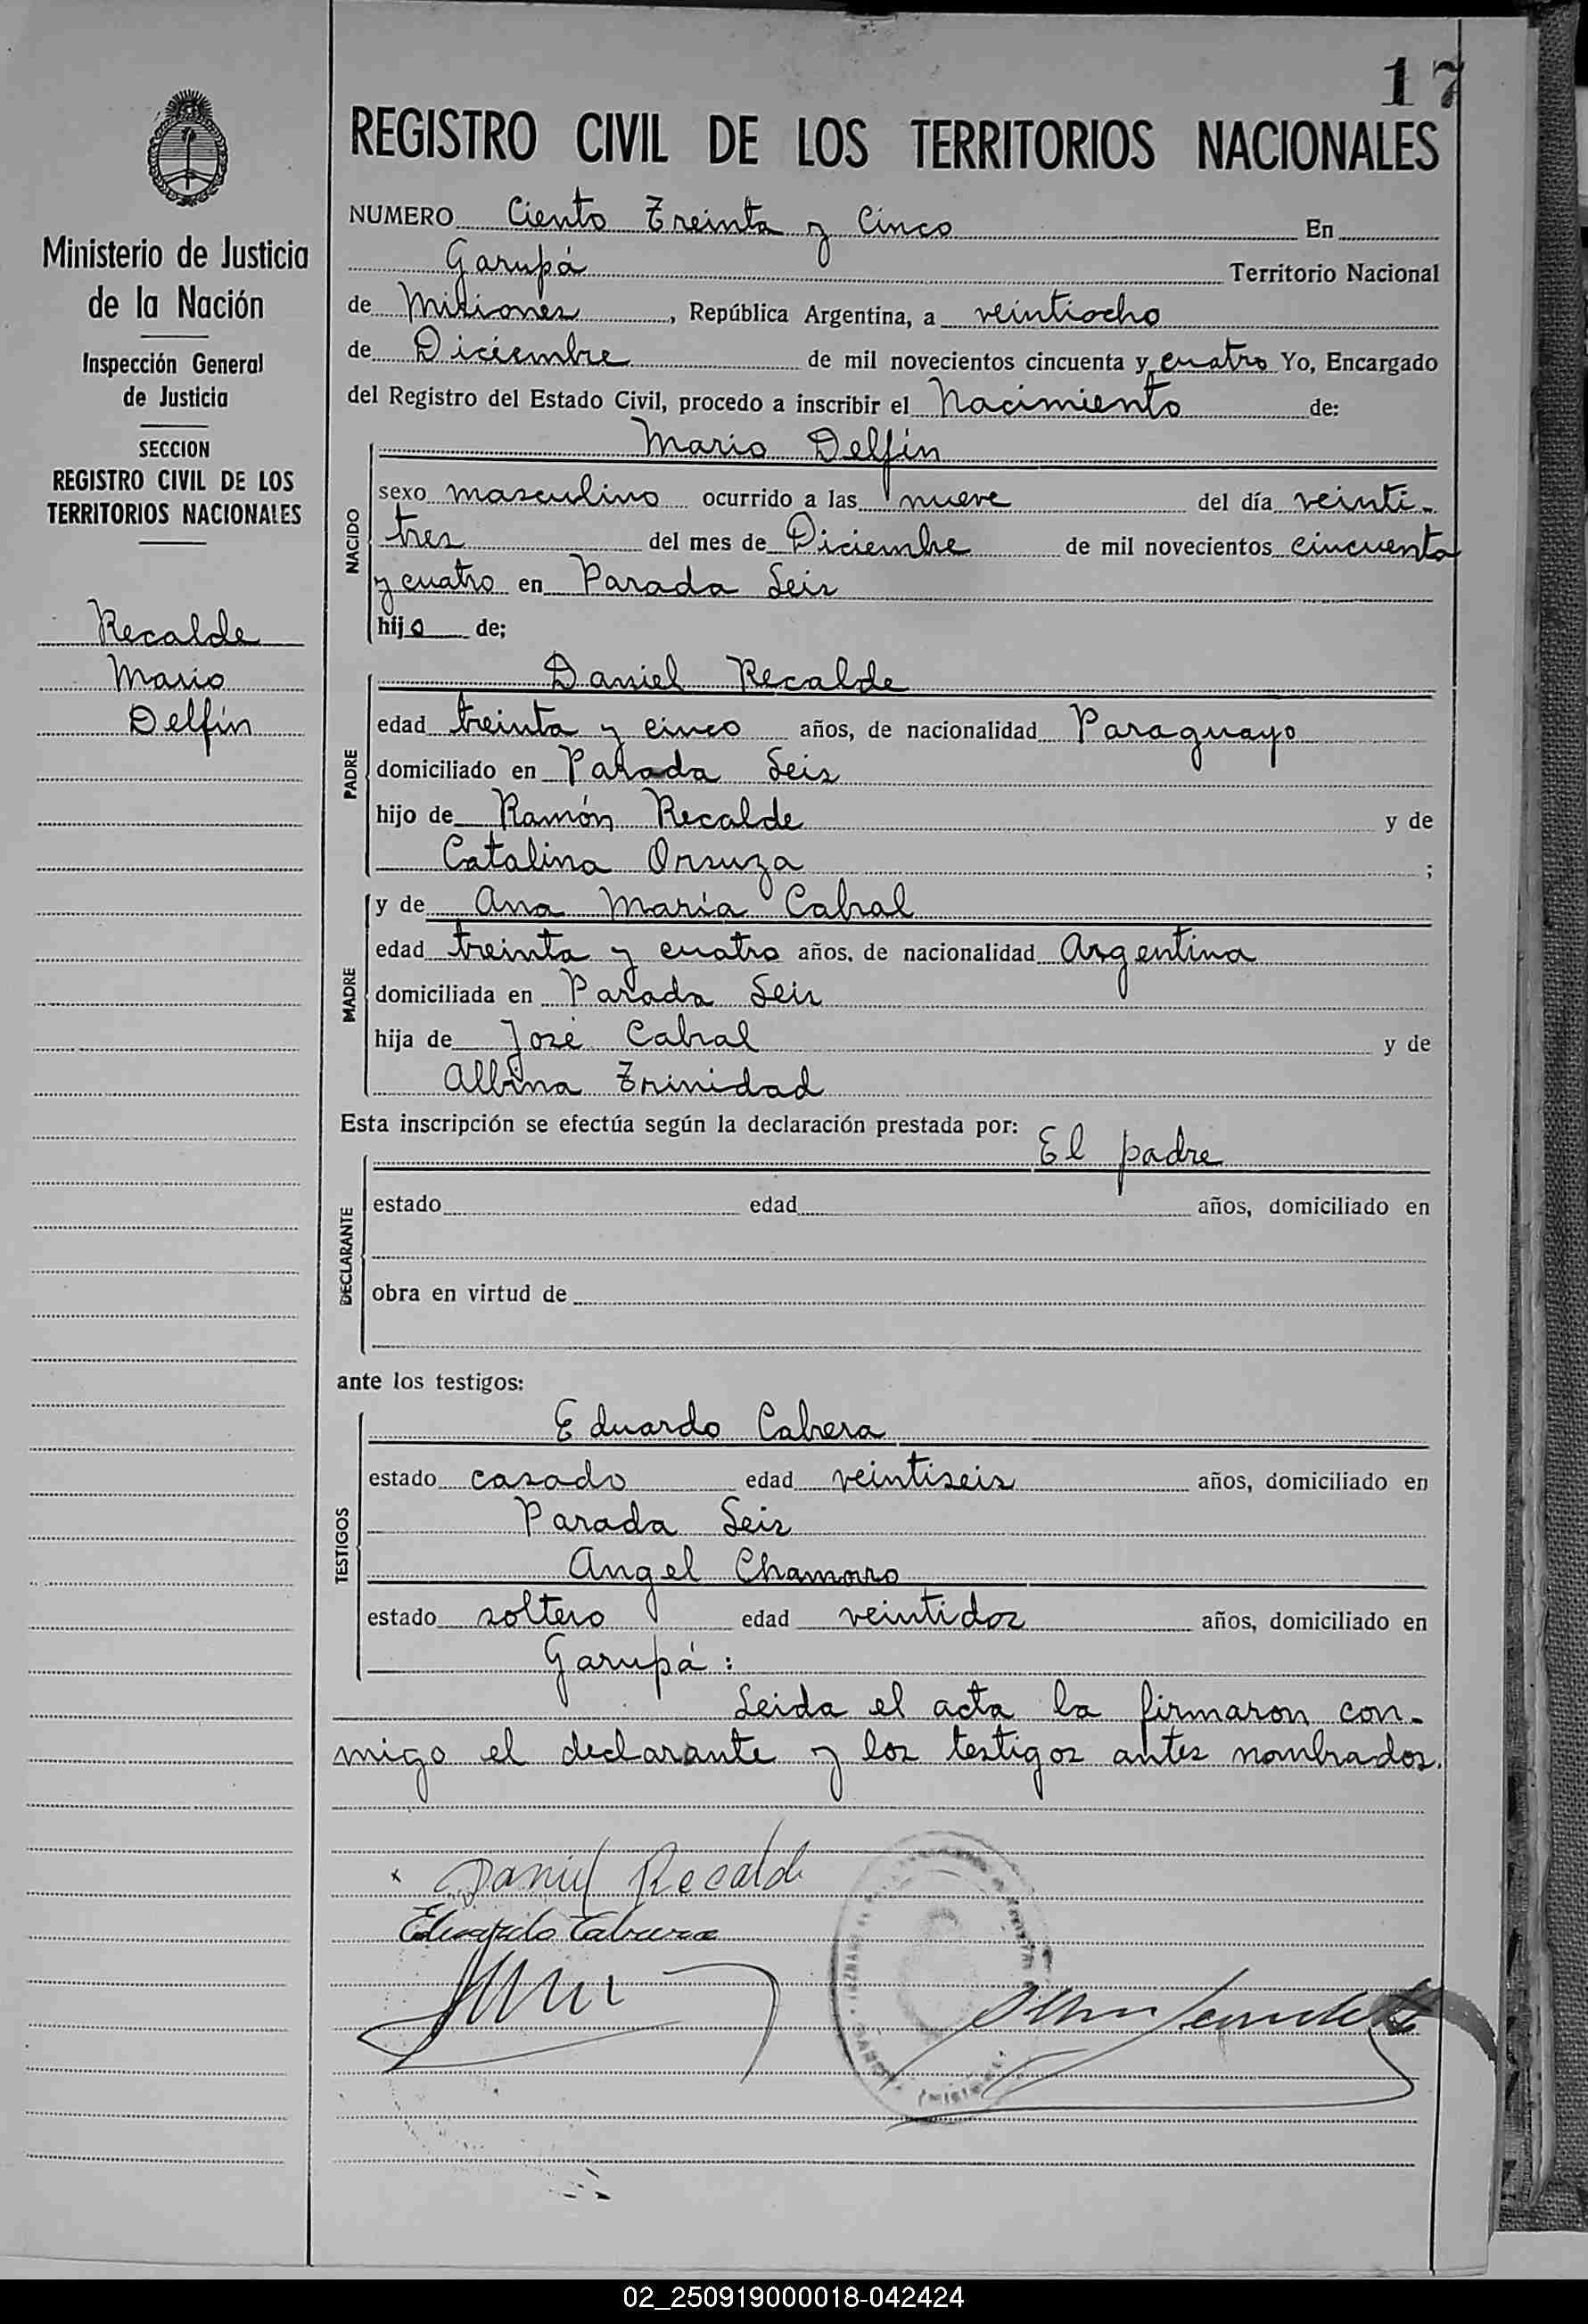 17
REGISTRO CIVIL DE LOS TERRITORIOS NACIONALES
Ministerio de Justicia
de la Nación
Inspección General
de Justicia
SECCION
REGISTRO CIVIL DE LOS
TERRITORIOS NACIONALES
Recalde
Mario
Delfín
NUMERO Ciento Treinta y Cinco En
Garupá Territorio Nacional
de Misiones, República Argentina, a veintiocho
de Diciembre de mil novecientos cincuenta y cuatro Yo, Encargado
del Registro del Estado Civil, procedo a inscribir el Nacimiento de:
Mario Delfín
NACIDO
sexo masculino ocurrido a las nueve del día veinti-
tres del mes de Diciembre de mil novecientos cincuenta
y cuatro en Parada Seis
hijo de;
Daniel Recalde
PADRE
edad treinta y cinco años, de nacionalidad Paraguayo
domiciliado en Parada Seis
hijo de Ramón Recalde y de
Catalina Orsuza ;
y de Ana María Cabral
MADRE
edad treinta y cuatro años, de nacionalidad Argentina
domiciliada en Parada Seis
hija de José Cabral y de
Albina Trinidad
Esta inscripción se efectúa según la declaración prestada por:
El padre
DECLARANTE
estado edad años, domiciliado en
obra en virtud de
ante los testigos:
Eduardo Cabrera
TESTIGOS
estado casado edad veintiseis años, domiciliado en
Parada Seis
Angel Chamorro
estado soltero edad veintidos años, domiciliado en
Garupá:
Leida el acta la firmaron con-
migo el declarante y los testigos antes nombrados.
Daniel Recalde
Eduardo Cabrera
02_250919000018-042424